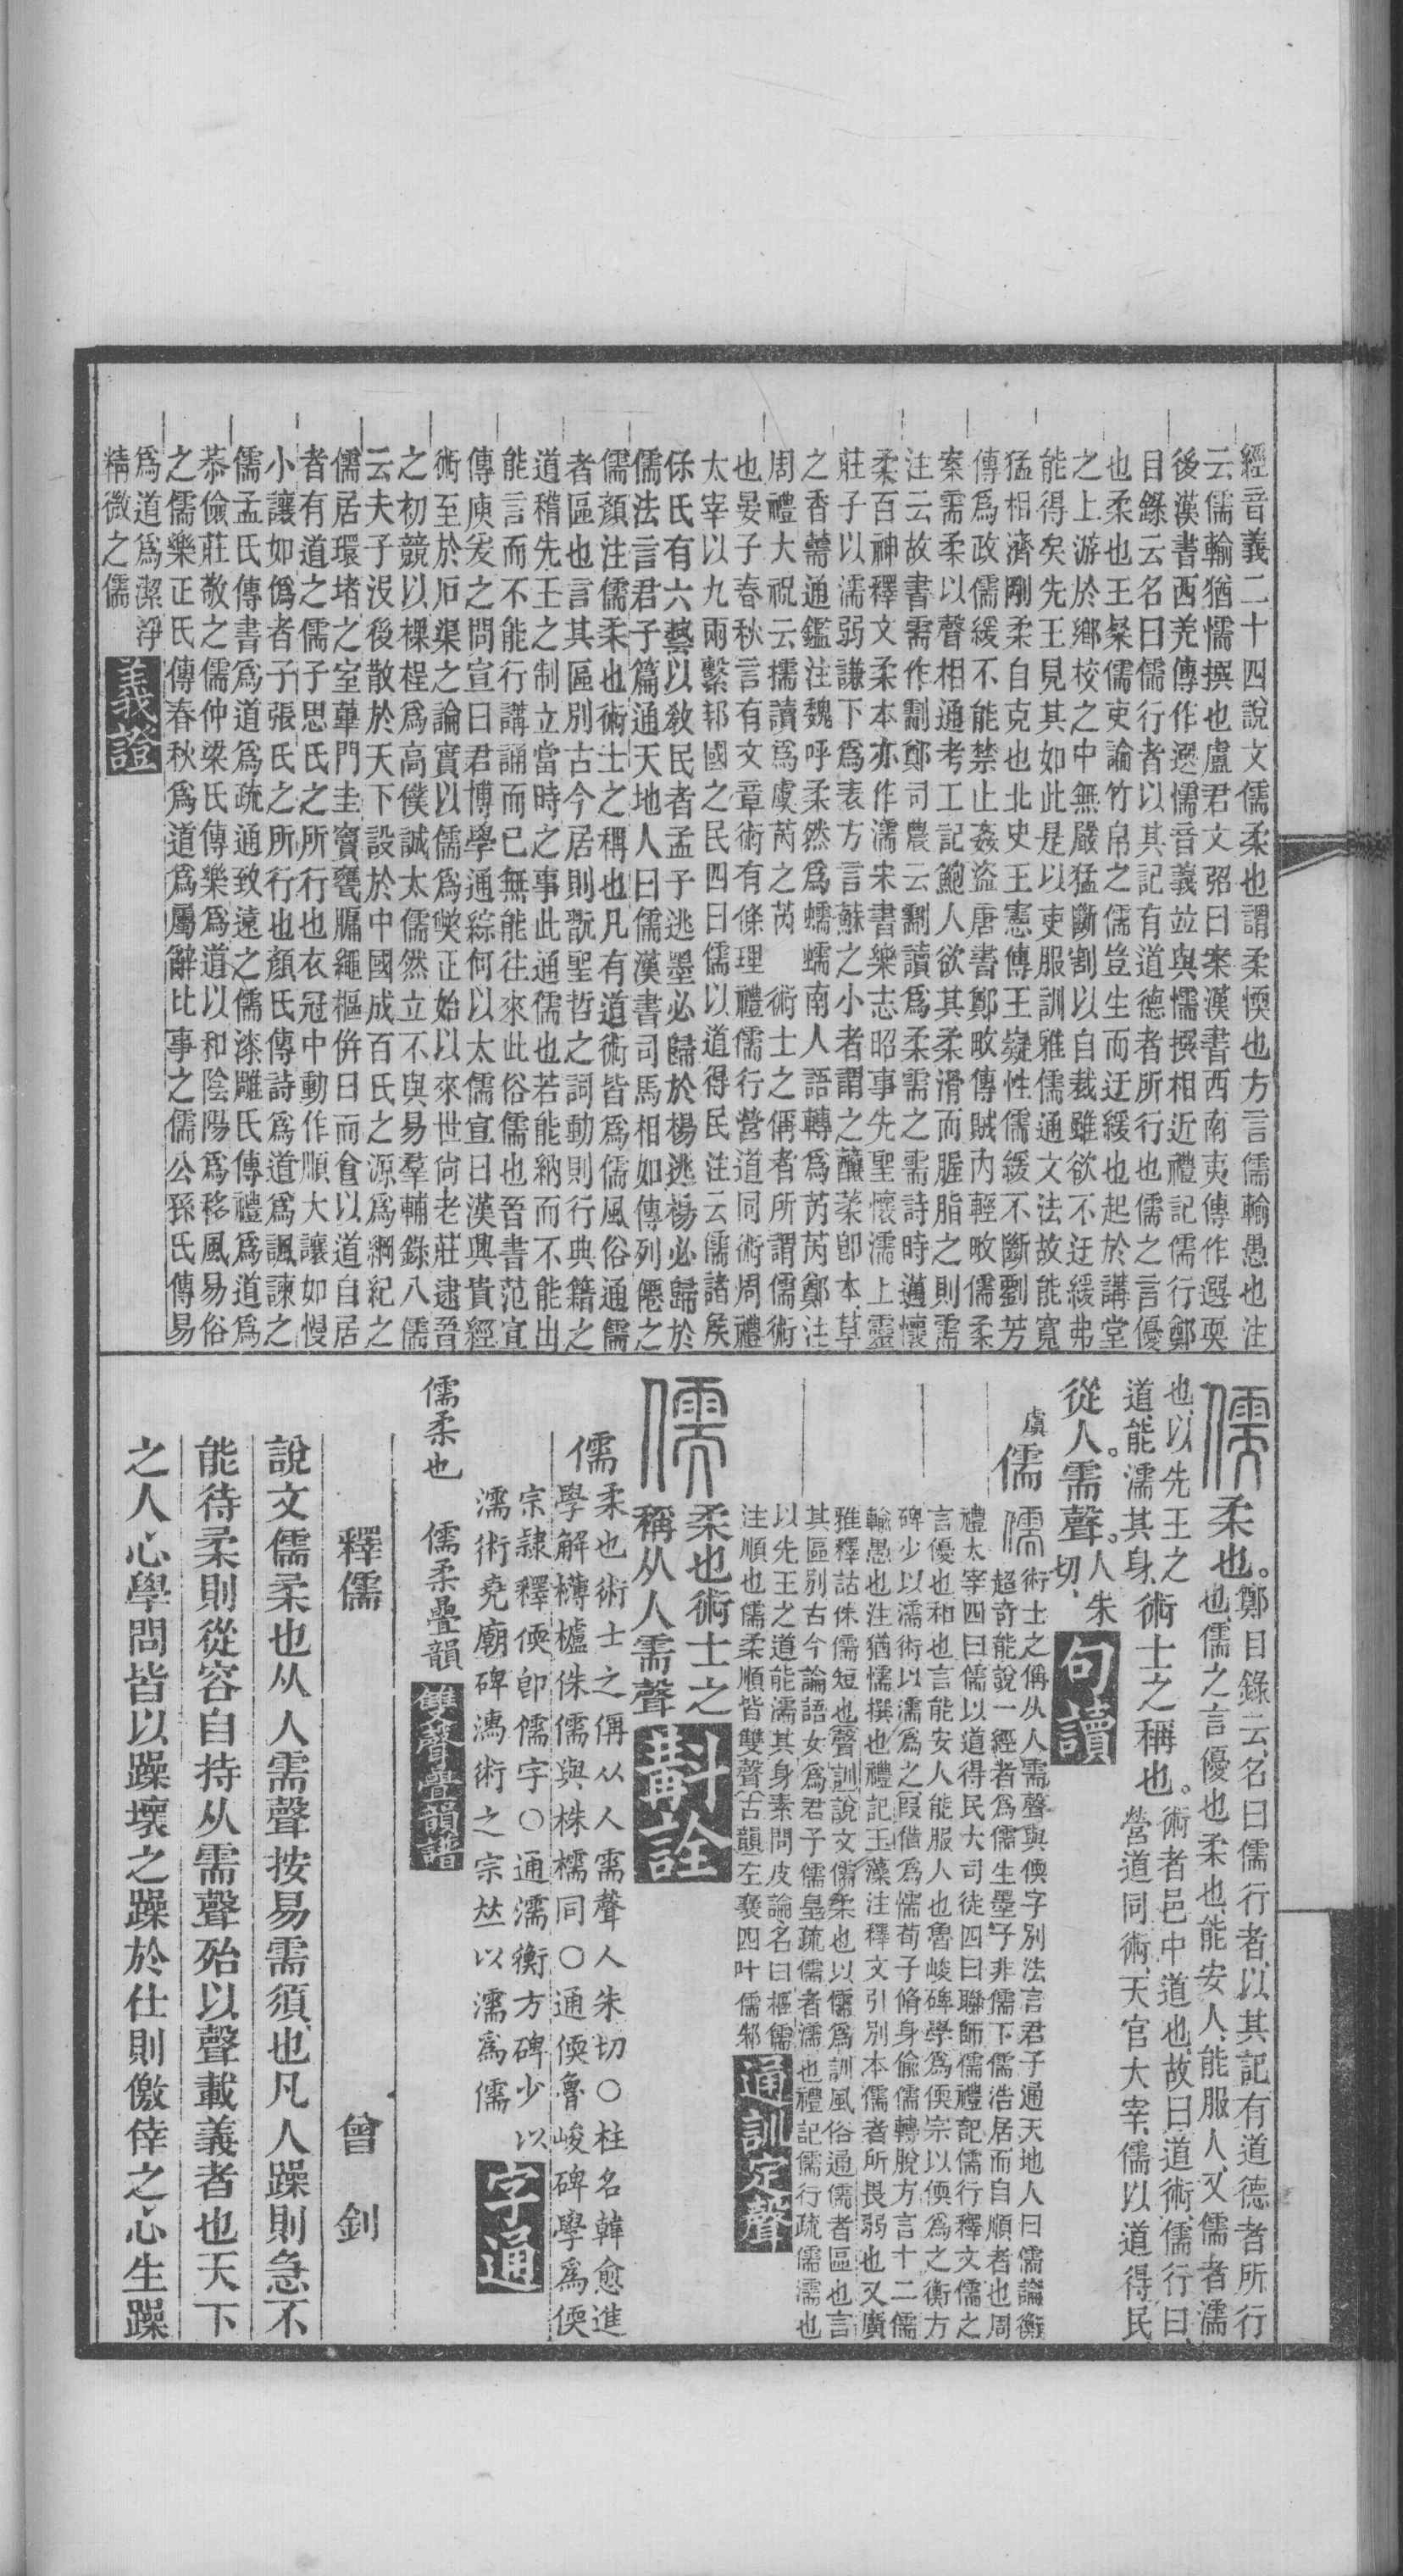 經音義二十四說文儒柔也謂柔愞也方言儒輸愚也注
云儒輸猶懦撰也盧君文弨曰案漢書西南夷傳作選耎
後漢書西羌傳作選懦音義並與懦撰相近禮記儒行鄭
目錄云名曰儒行者以其記有道德者所行也儒之言優
也柔也王粲儒吏論竹帛之儒豈生而迂緩也起於講堂
之上游於鄉校之中無嚴猛斷割以自裁雖欲不迂緩弗
能得矣先王見其如此是以吏服訓雅儒通文法故能寬
猛相濟剛柔自克也北史王憲傳王嶷性儒緩不斷劉芳
傳爲政儒緩不能禁止姦盜唐書鄭畋傳賊內輕畋儒柔
案需柔以聲相通考工記鮑人欲其柔滑而腥脂之則需
注云故書需作劃鄭司農云劃讀爲柔需之需詩時邁懷
柔百神釋文柔本亦作濡宋書樂志昭事先聖懷濡上靈
莊子以濡弱謙下爲表方言蘇之小者謂之釀菜卽本草
之香薷通鑑注魏呼柔然爲蠕蠕南人語轉爲芮芮鄭注
周禮大祝云擩讀爲虞芮之芮　術士之偁者所謂儒術
也晏子春秋言有文章術有條理　禮儒行營道同術周禮
太宰以九兩繫邦國之民四曰儒以道得民注云儒諸矦
保氏有六藝以敎民者孟子逃墨必歸於楊逃楊必歸於
儒法言君子篇通天地人曰儒漢書司馬相如傳列僊之
儒顏注儒柔也術士之稱也凡有道術皆爲儒風俗通儒
者區也言其區別古今居則翫聖哲之詞動則行典籍之
道稽先王之制立當時之事此通儒也若能納而不能出
能言而不能行講誦而已無能往來此俗儒也晉書范宣
傳庾爰之問宣曰君博學通綜何以太儒宣曰漢興貴經
術至於石渠之論實以儒爲獘正始以來世尙老莊逮晉
之初競以裸裎爲高僕誠太儒然立不與易羣輔錄八儒
云夫子沒後散於天下設於中國成百氏之源爲綱紀之
儒居環堵之室蓽門圭竇甕牖繩樞倂日而食以道自居
者有道之儒子思氏之所行也衣冠中動作順大讓如慢
小讓如僞者子張氏之所行也顏氏傳詩爲道爲諷諫之
儒孟氏傳書爲道爲疏通致遠之儒漆雕氏傳禮爲道爲
恭儉莊敬之儒仲梁氏傳樂爲道以和陰陽爲移風易俗
之儒樂正氏傳春秋爲道爲屬辭比事之儒公孫氏傳易
爲道爲潔淨
精微之儒　義證
儒柔也。鄭目錄云、名曰儒行者、以其記有道德者所行
也、儒之言優也柔也、能安人、能服人、又儒者濡
也、以先王之
道、能濡其身、術士之稱也。術者邑中道也、故曰道術、儒行曰、
營道同術、天官大宰、儒以道得民
從人。需聲。人朱切、句讀
虞儒　儒術士之偁从人需聲與偄字別法言君子通天地人曰儒論衡
超奇能說一經者爲儒生墨子非儒下儒浩居而自順者也周
禮太宰四曰儒以道得民大司徒四曰聯師儒禮記儒行釋文儒之
言優也和也言能安人能服人也魯峻碑學爲偄宗以偄爲之衡方
碑少以濡術以濡爲之叚借爲懦荀子脩身偷儒轉脫方言十二儒
輸愚也注猶懦撰也禮記玉藻注釋文引別本儒者所畏弱也又廣
雅釋詁侏儒短也聲訓說文儒柔也以儒爲訓風俗通儒者區也言
其區別古今論語女爲君子儒皇疏儒者濡也禮記儒行疏儒濡也
以先王之道能濡其身素問皮論名曰樞儒
注順也儒柔順皆雙聲古韻左襄四叶儒邾　通訓定聲
儒柔也術士之
稱从人需聲　斠詮
儒柔也術士之偁从人需聲人朱切○柱名韓愈進
學解欂櫨侏儒與株檽同○通偄魯峻碑學爲偄
宗隷釋偄卽儒字○通濡衡方碑少以
濡術堯廟碑濡術之宗㠪以濡爲儒　字通
儒柔也　儒柔疊韻　雙聲疊韻譜
釋儒　曾釗
說文儒柔也从人需聲按易需須也凡人躁則急不
能待柔則從容自持从需聲殆以聲載義者也天下
之人心學問皆以躁壞之躁於仕則儌倖之心生躁